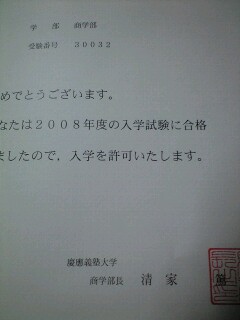 学　部　商学部
受験番号　20032
めでとうございます。
なたは２００８年度の入学試験に合格
ましたので，入学を許可いたします。
慶應義塾大学
商学部長　清　家　篤